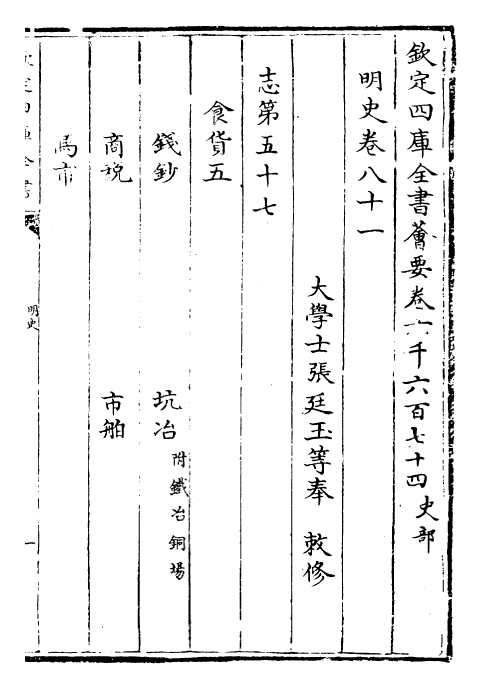 欽定四庫全書薈要卷六千六百七十四 史部
明史卷八十一
大學士張廷玉等奉 敕修
志第五十七
食貨五
錢鈔 坑冶 附鐵冶銅場
商稅 市舶
馬市
欽定四庫全書 明史 一